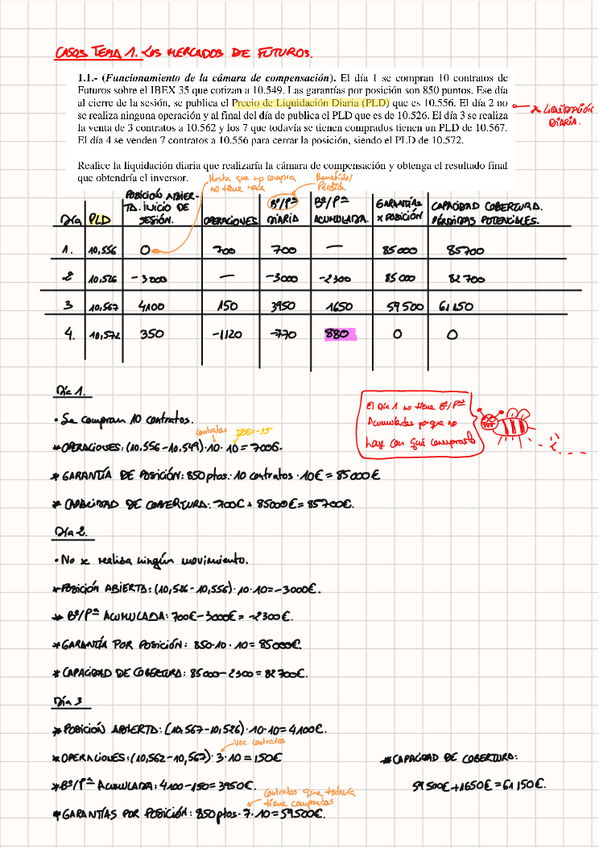 CASOS TEMA 1. LOS MERCADOS DE FUTUROS.
1.1.- (Funcionamiento de la cámara de compensación). El día 1 se compran 10 contratos de
Futuros sobre el IBEX 35 que cotizan a 10.549. Las garantías por posición son 850 puntos. Ese día
al cierre de la sesión, se publica el Precio de Liquidación Diaria (PLD) que es 10.556. El día 2 no
se realiza ninguna operación y al final del día de publica el PLD que es de 10.526. El día 3 se realiza
la venta de 3 contratos a 10.562 y los 7 que todavía se tienen comprados tienen un PLD de 10.567.
El día 4 se venden 7 contratos a 10.556 para cerrar la posición, siendo el PLD de 10.572.
x LIQUIDACIÓN
DIARIA.
Realice la liquidación diaria que realizaría la cámara de compensación y obtenga el resultado final
que obtendría el inversor.
Hasta que no compra
no tiene nada
Beneficio/
Pérdida
Día PLD POSICIÓN ABIER-
TA. INICIO DE
SESIÓN. OPERACIONES Bº/Pª
DIARIA Bº/Pª
ACUMULADA. GARANTÍAS
x POSICIÓN CAPACIDAD COBERTURA.
PÉRDIDAS POTENCIALES.
1. 10,556 0 700 700 — 85000 85700
2 10,526 -3000 — -3000 -2300 85000 82700
3 10,567 4100 150 3950 1650 59500 61150
4. 10,572 350 -1120 -770 880 0 0
Día 1.
· Se compran 10 contratos.
contratos IBEX-35
* OPERACIONES: (10,556-10,549)·10·10=700€.
* GARANTÍA DE POSICIÓN: 850 ptos. 10 contratos · 10€ = 85000€
* CAPACIDAD DE COBERTURA: 700€ + 85000€ = 85700€.
El Día 1 no tiene Bº/Pªs
Acumuladas porque no
hay con qué compararlo
Día 2.
· No se realiza ningún movimiento.
* POSICIÓN ABIERTA: (10,526-10,556)·10·10=-3000€.
* Bº/Pª ACUMULADA: 700€-3000€ = -2300€.
* GARANTÍA POR POSICIÓN: 850·10·10=85000€.
* CAPACIDAD DE COBERTURA: 85000-2300=82700€.
Día 3
* POSICIÓN ABIERTA: (10,567-10,526)·10·10=4,100€.
* OPERACIONES: (10,562-10,567)·3·10=150€
* Bº/Pª ACUMULADA: 4100-150=3950€.
contratos que todavía
tiene comprados
* GARANTÍAS POR POSICIÓN: 850ptos·7·10=59500€.
* CAPACIDAD DE COBERTURA:
59500€+1650€=61150€.